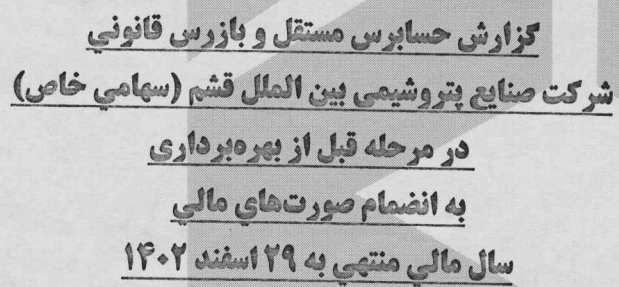 گزارش حسابرس مستقل و بازرس قانوني
شرکت صنایع پتروشیمی بین الملل قشم (سهامي خاص)
در مرحله قبل از بهره‌برداری
به انضمام صورت‌هاي مالي
سال مالي منتهي به ۲۹ اسفند ۱۴۰۲